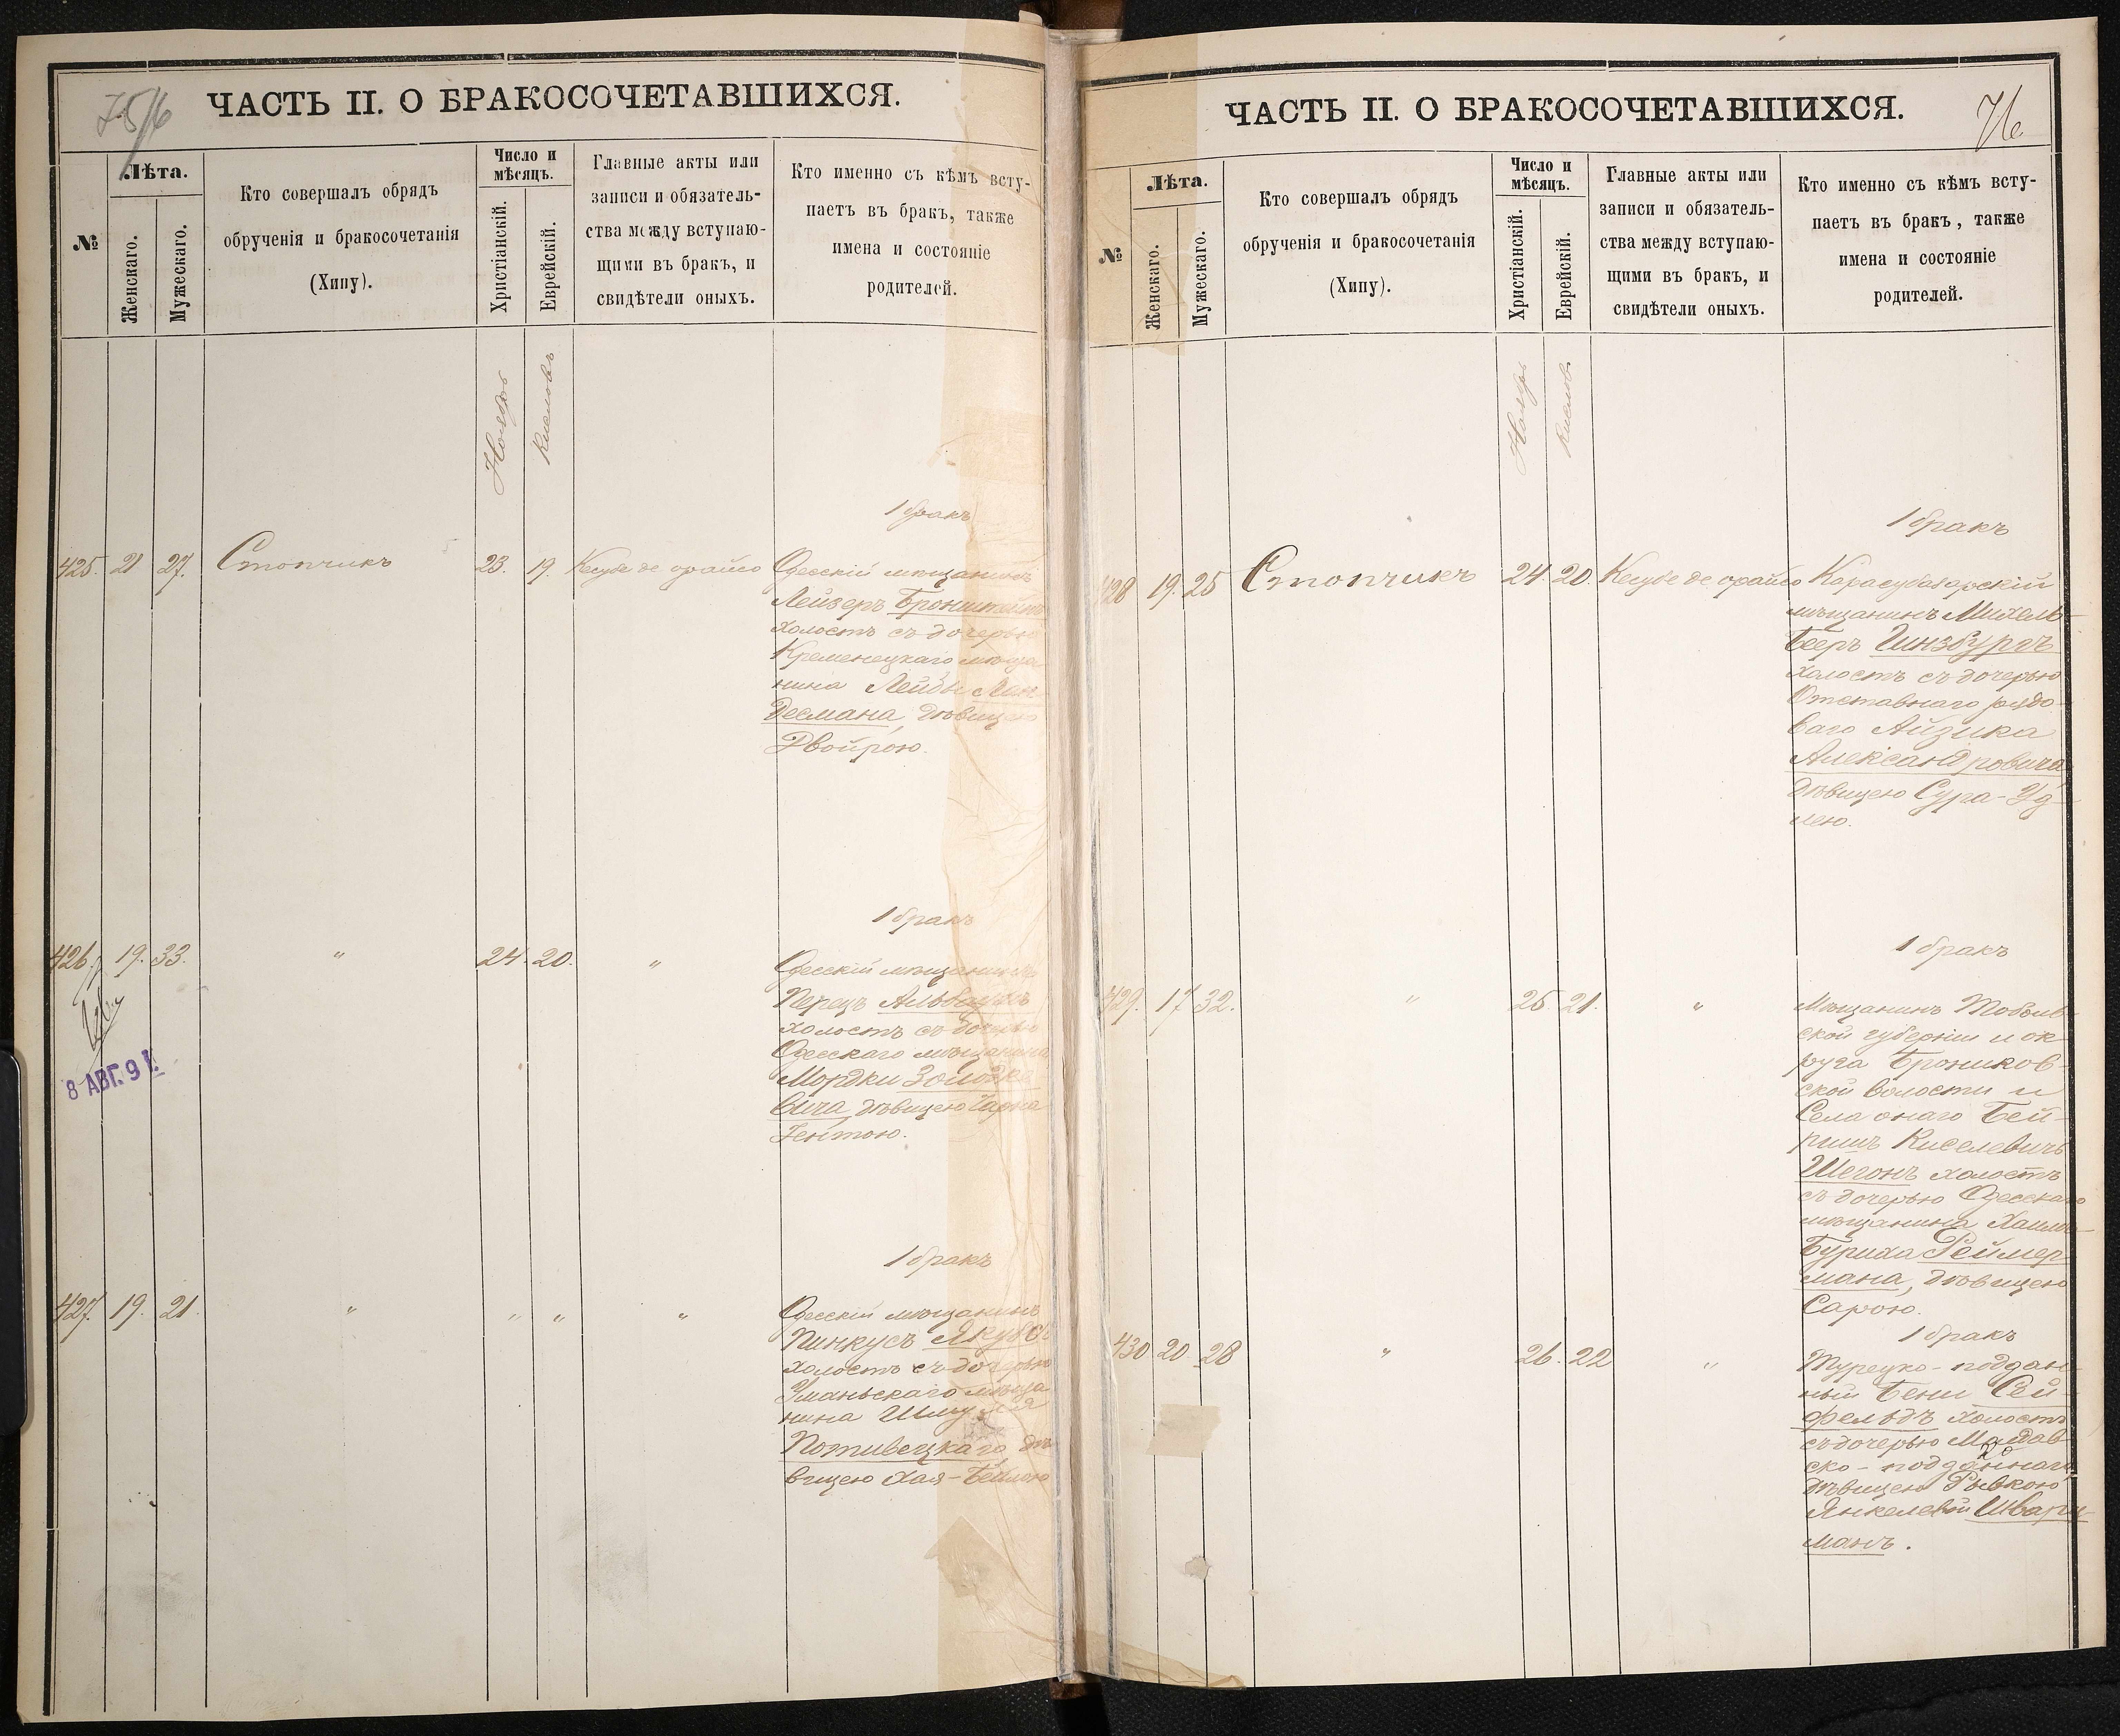 ЧАСТЬ II. О БРАКОСОЧЕТАВШИХСЯ.
№
Лѣта.
Женскаго.
Мужескаго.
Кто совершалъ обрядъ
обрученія и бракосочетанія
(Хипу).
Число и
мѣсяцъ.
Христіанскій.
Еврейскій.
Главные акты или
записи и обязатель-
ства между вступаю-
щими въ бракъ, и
свидѣтели оныхъ.
Кто именно съ кѣмъ всту-
паетъ въ бракъ, также
имена и состояніе
родителей.
Ноябрь
Кислевъ
1 бракъ
425. 21 27. Стопчикъ 23. 19. Кесубе де орайсо Одесскій мѣщанинъ
Лейзеръ Бронштейнъ
холостъ съ дочерью
Кременецкаго мѣща
нина Лейбы Лин
десмана, дѣвицею
Двойрою.
1 бракъ
426. 19. 33. " 24. 20. " Одесскій мѣщанинъ
Перецъ
холостъ съ дочерью
Одесскаго мѣщанина
Мордки Золодке
вича, дѣвицею Чарна
Іентою.
8 АВГ. 91.
1 бракъ
427. 19. 21. " " " " Одесскій мѣщанинъ
Пинкусъ
холостъ съ дочерью
Уманьскаго мѣща
нина Шмуля
Потивецкаго, дѣ
вицею Хая-Бейлою
ЧАСТЬ II. О БРАКОСОЧЕТАВШИХСЯ.
76
№
Лѣта.
Женскаго.
Мужескаго.
Кто совершалъ обрядъ
обрученія и бракосочетанія
(Хипу).
Число и
мѣсяцъ.
Христіанскій.
Еврейскій.
Главные акты или
записи и обязатель-
ства между вступаю-
щими въ бракъ, и
свидѣтели оныхъ.
Кто именно съ кѣмъ всту-
паетъ въ бракъ, также
имена и состояніе
родителей.
Ноябрь
Кислевъ
1 бракъ
428 19. 25 Стопчикъ 24. 20. Кесубе де орайсо Карасубазарскій
мѣщанинъ Михель-
Бееръ Гинзбургъ
холостъ съ дочерью
Отставнаго рядо-
ваго Айзика
Александровича,
дѣвицею Сура-Уд-
лею.
1 бракъ
429. 17 32. " 25. 21. " Мѣщанинъ Тоболь-
ской губерніи и ок-
руга Броников-
ской волости и
Села онаго Бей-
ришъ Киселевичъ
Шегонъ холостъ
съ дочерью Одесскаго
мѣщанина Хаима-
Буриха Реймер-
мана, дѣвицею
Сарою.
1 бракъ
430 20 28 " 26. 22 " Турецко-поддан-
ный Бени Сей-
фельдъ холостъ
съ дочерью Молдав-
ско-подданнаго
дѣвицею Рывкою
Янкелевой Шварц-
манъ.